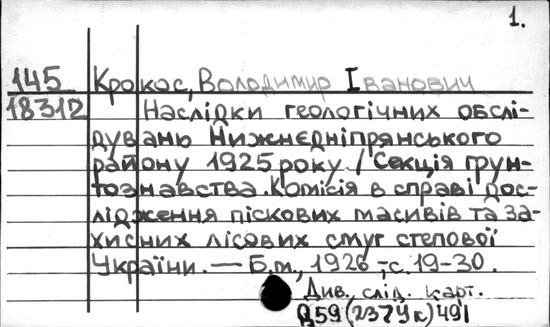 1.
145 Крокос, Володимир Іванович
18312 Наслідки геологічних обслі-
дувань Нижнєдніпрянського
району 1925 року / Секція ґрун-
тознавства. Комісія в справі дос-
лідження піскових масивів та за-
хисних лісових смуг степової
України. — Б.м., 1926 -, с. 19-30.
Див. слід. карт.
Д59(237Ук)491